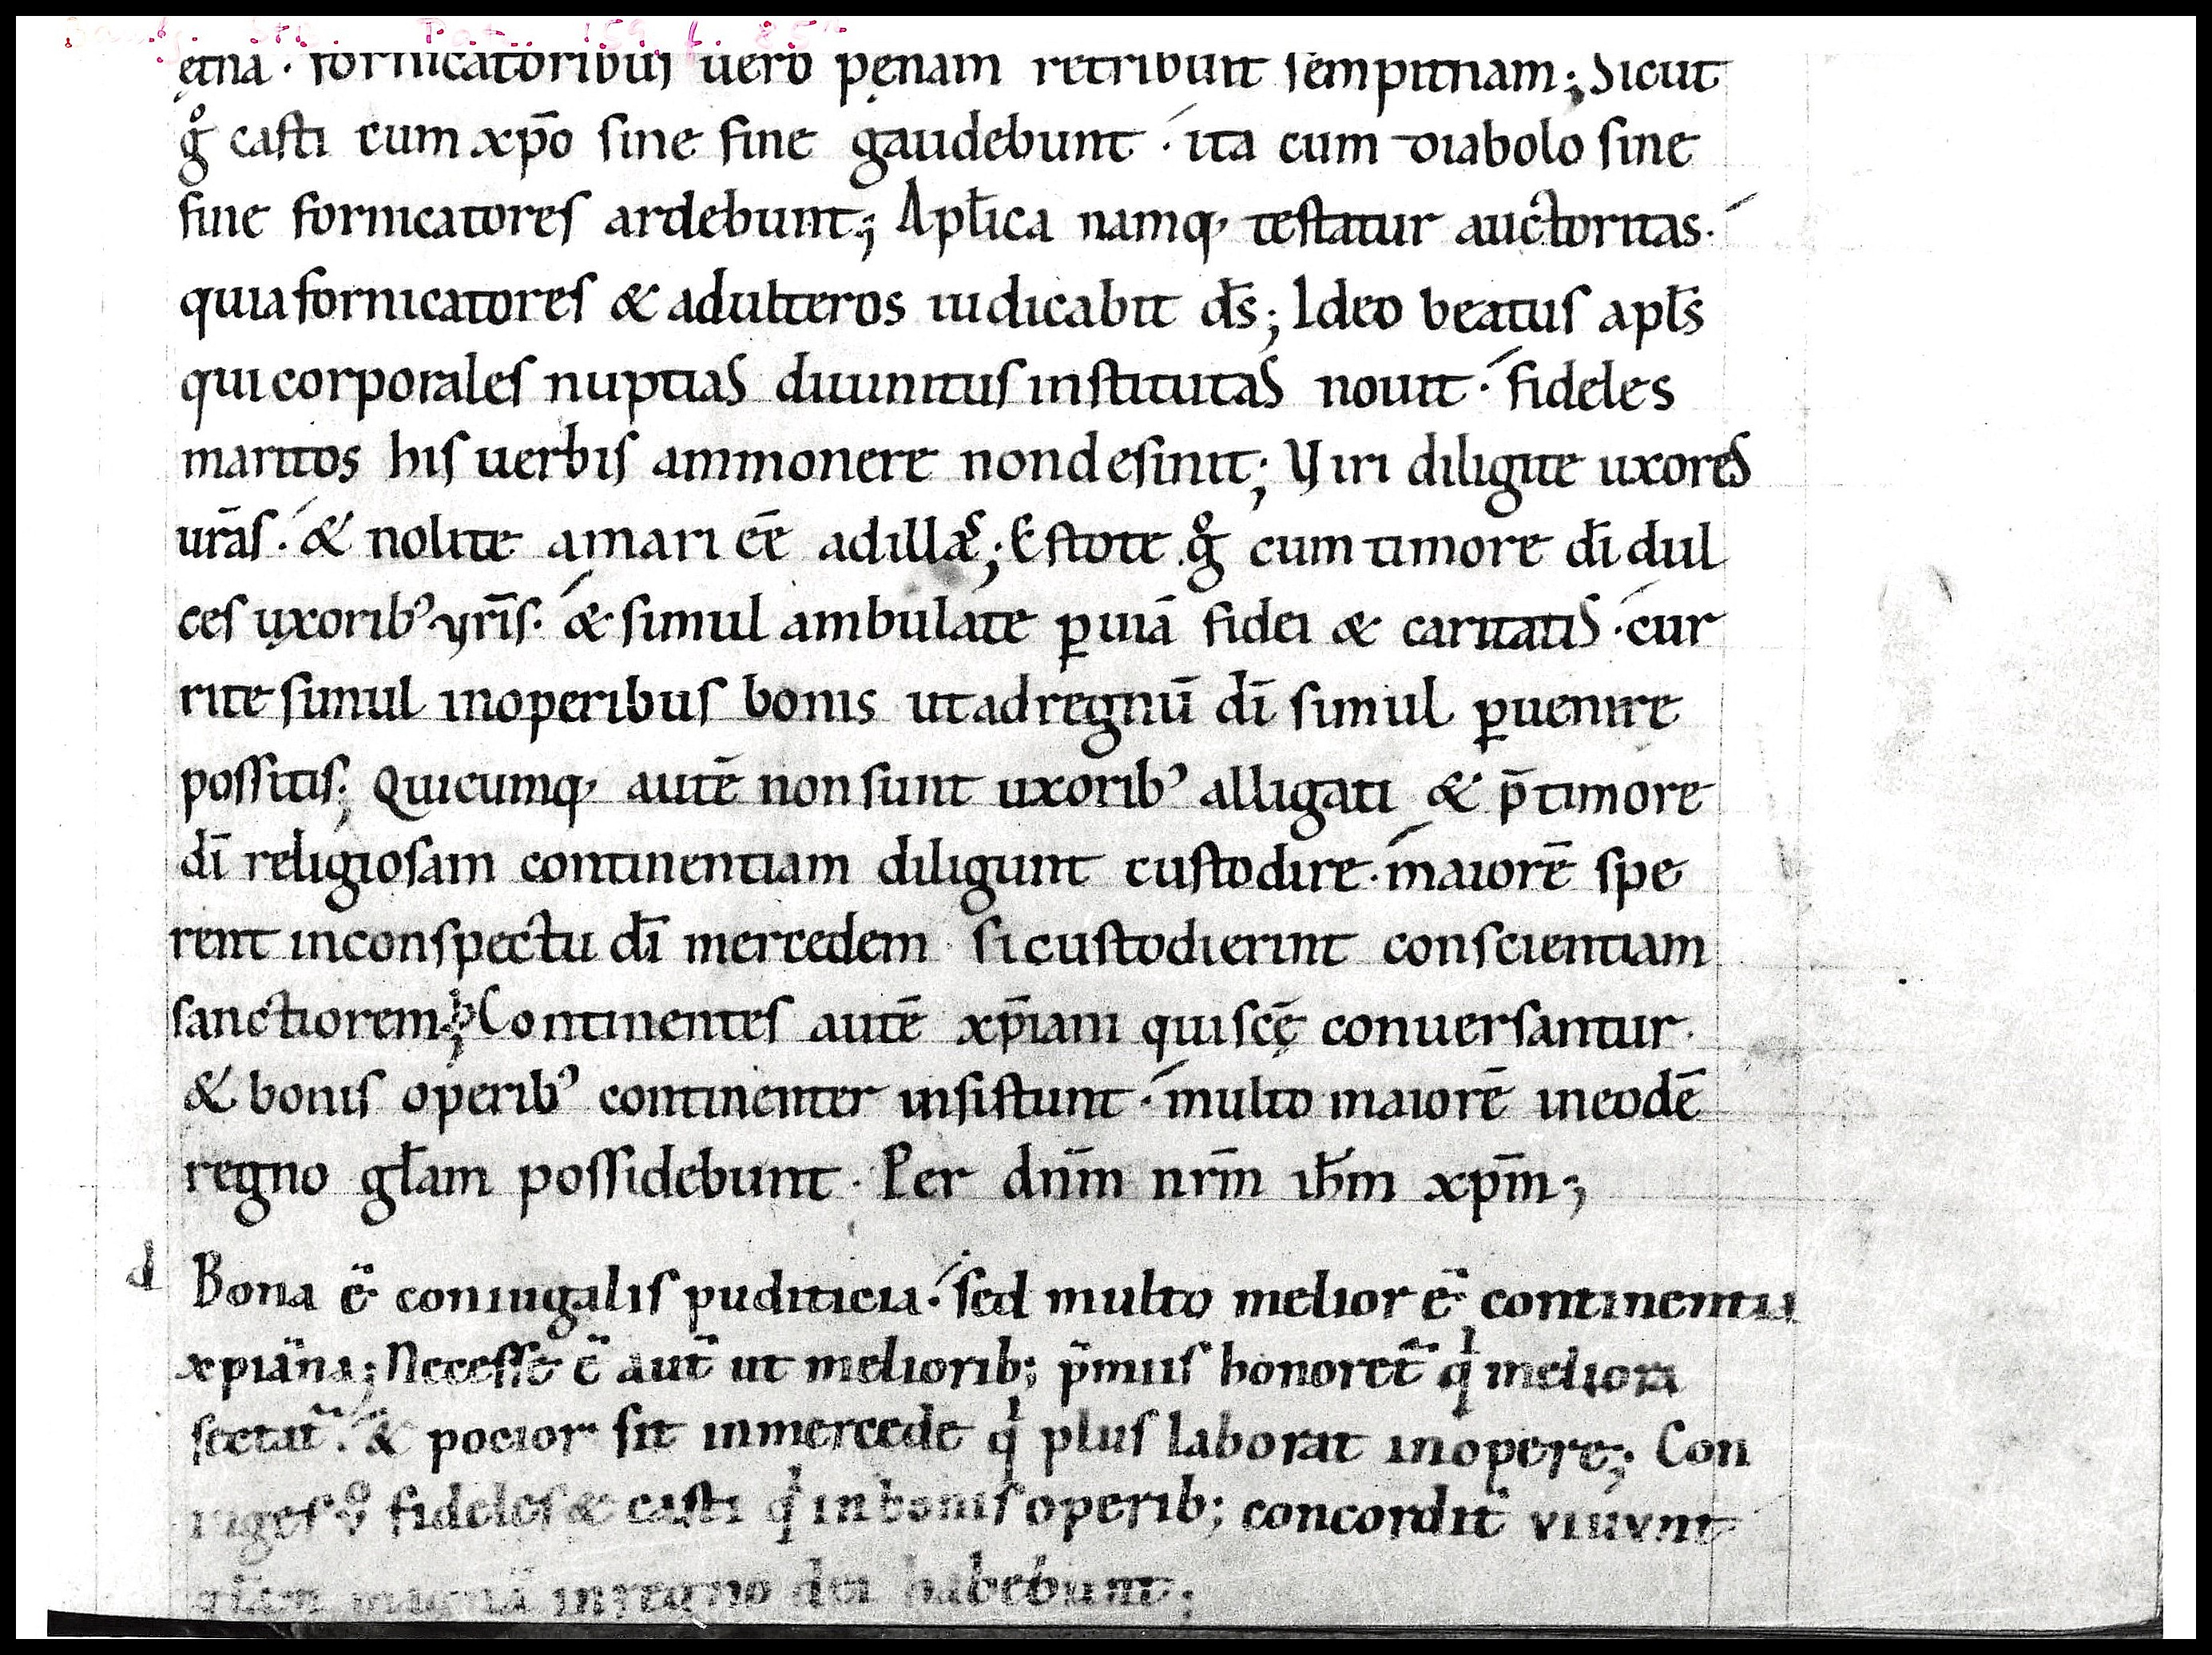 ętna · fornicatoribus uero pęnam retribuit sempitnam; Sicut
g̊ casti cum xp̄o sine fine gaudebunt · ita cum diabolo sine
fine fornicatores ardebunt; Apl̄ica namq, testatur auctoritas ·
quia fornicatores & adulteros iudicabit d̄s; Ideo beatus apl̄s
qui corporales nuptias diuinitus institutas nouit · fideles
maritos his uerbis ammonere non desinit; Viri diligite uxores
ur̄as · & nolite amari ēē ad illas; Estote g̊ cum timore dī dul
ces uxorib' vr̄is · & simul ambulate ꝑ uiā fidei & caritatis · cur
rite simul in operibus bonis ut ad regnū dī simul ꝑuenire
possitis; Quicumq, autē non sunt uxorib' alligati & p̄ timore
dī religiosam continentiam diligunt custodire · maiorē spe
rent in conspectu dī mercedem si custodierint conscientiam
sanctiorem; Continentes autē xp̄iani qui scę̄ conuersantur ·
& bonis operib' continenter insistunt · multo maiorē in eodē
regno gl̄am possidebunt · Per dn̄m nr̄m ih̄m xp̄m;
d Bona ē coniugalis puditicia · sed multo melior ē continentia
xpiān̄a; Necesse ē aut̄ ut meliorib; p̄mus honoret̄ qi meliora
sectat̄ · & pocior sit in mercede qi plus laborat in opere; Con
iuges ů fideles & casti qi in bonis operib; concordit̄ viuvnt
gl̄am magnā in regno dei habebunt;